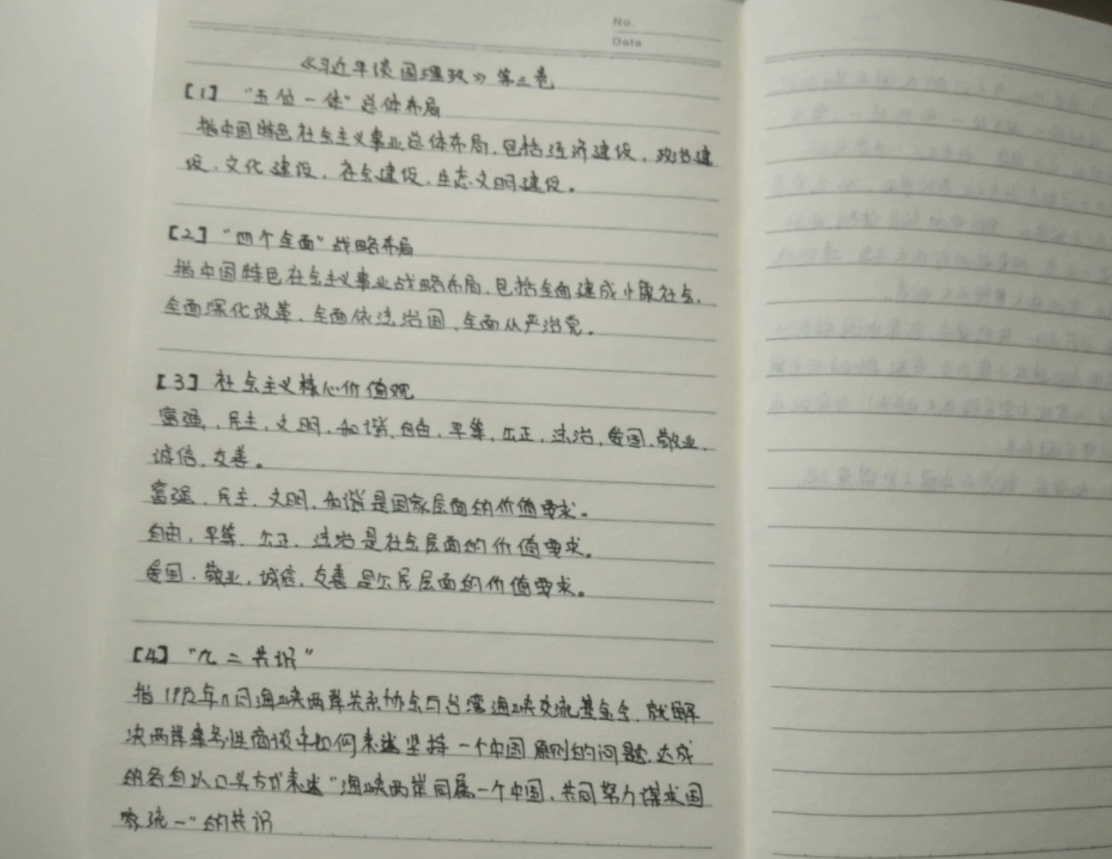 No.
Date
《习近平谈国理政》第二卷
[1] "五位一体"总体布局
指中国特色社会主义事业总体布局,包括经济建设、政治建
设、文化建设、社会建设、生态文明建设。
[2] "四个全面"战略布局
指中国特色社会主义事业战略布局,包括全面建成小康社会、
全面深化改革、全面依法治国、全面从严治党。
[3] 社会主义核心价值观
富强、民主、文明、和谐、自由、平等、公正、法治、爱国、敬业、
诚信、友善。
富强、民主、文明、和谐是国家层面的价值要求。
自由、平等、公正、法治是社会层面的价值要求。
爱国、敬业、诚信、友善是公民层面的价值要求。
[4] "九二共识"
指1992年11月海峡两岸关系协会与台湾海峡交流基金会,就解
决两岸事务性商谈中如何表述坚持一个中国原则的问题,达成
的各自以口头方式表述"海峡两岸同属一个中国,共同努力谋求国
家统一"的共识